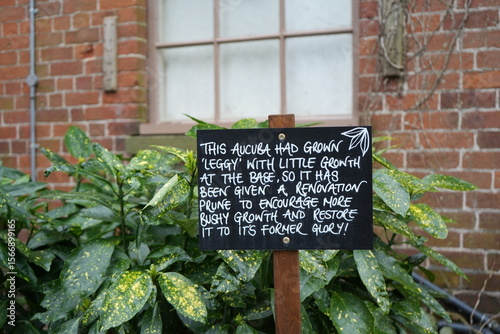 THIS AUCUBA HAD GROWN
'LEGGY' WITH LITTLE GROWTH
AT THE BASE, SO IT HAS
BEEN GIVEN A RENOVATION
PRUNE TO ENCOURAGE MORE
BUSHY GROWTH AND RESTORE
IT TO ITS FORMER GLORY!
Adobe Stock | #1566899165